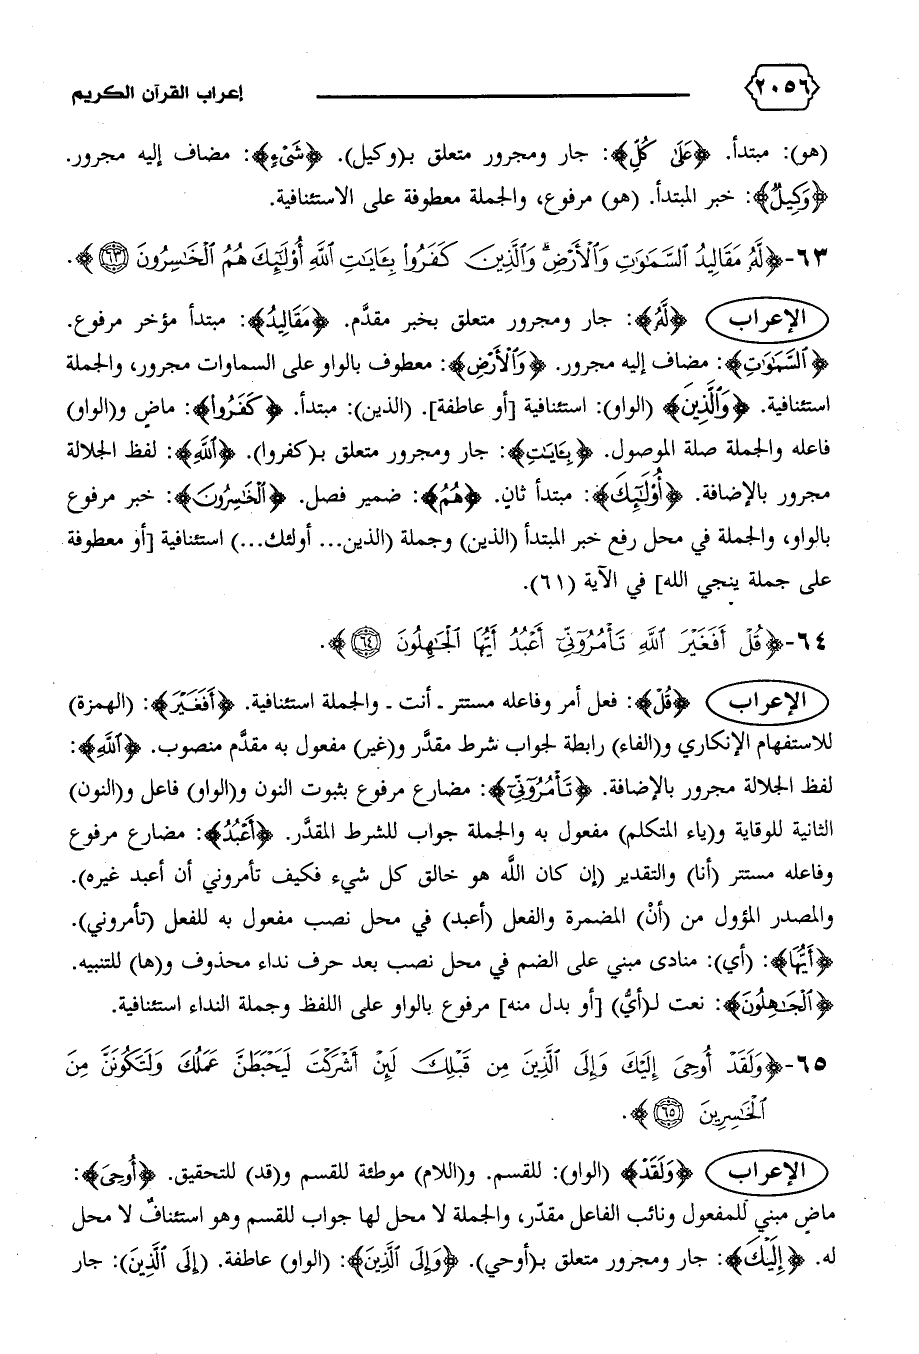 ٢٠٥٦ إعراب القرآن الكريم
(هو): مبتدأ. ﴿عَلَىٰ كُلِّ﴾: جار ومجرور متعلق بـ(وكيل). ﴿شَيْءٍ﴾: مضاف إليه مجرور.
﴿وَكِيلٌ﴾: خبر المبتدأ. (هو) مرفوع، والجملة معطوفة على الاستئنافية.
٦٣-﴿لَّهُ مَقَالِيدُ السَّمَٰوَٰتِ وَالْأَرْضِ وَالَّذِينَ كَفَرُوا۟ بِـَٔايَٰتِ اللَّهِ أُو۟لَٰٓئِكَ هُمُ الْخَٰسِرُونَ ٦٣﴾.
الإعراب ﴿لَّهُ﴾: جار ومجرور متعلق بخبر مقدَّم. ﴿مَقَالِيدُ﴾: مبتدأ مؤخر مرفوع.
﴿السَّمَٰوَٰتِ﴾: مضاف إليه مجرور. ﴿وَالْأَرْضِ﴾: معطوف بالواو على السماوات مجرور، والجملة
استئنافية. ﴿وَالَّذِينَ﴾ (الواو): استئنافية [أو عاطفة]. (الذين): مبتدأ. ﴿كَفَرُوا۟﴾: ماضٍ و(الواو)
فاعله والجملة صلة الموصول. ﴿بِـَٔايَٰتِ﴾: جار ومجرور متعلق بـ(كفروا). ﴿اللَّهِ﴾: لفظ الجلالة
مجرور بالإضافة. ﴿أُو۟لَٰٓئِكَ﴾: مبتدأ ثانٍ. ﴿هُمُ﴾: ضمير فصل. ﴿الْخَٰسِرُونَ﴾: خبر مرفوع
بالواو، والجملة في محل رفع خبر المبتدأ (الذين) وجملة (الذين... أولئك...) استئنافية [أو معطوفة
على جملة ينجي الله] في الآية (٦١).
٦٤-﴿قُلْ أَفَغَيْرَ اللَّهِ تَأْمُرُوٓنِّىٓ أَعْبُدُ أَيُّهَا الْجَٰهِلُونَ ٦٤﴾.
الإعراب ﴿قُلْ﴾: فعل أمر وفاعله مستتر ـ أنت ـ والجملة استئنافية. ﴿أَفَغَيْرَ﴾: (الهمزة)
للاستفهام الإنكاري و(الفاء) رابطة لجواب شرط مقدَّر و(غير) مفعول به مقدَّم منصوب. ﴿اللَّهِ﴾:
لفظ الجلالة مجرور بالإضافة. ﴿تَأْمُرُوٓنِّىٓ﴾: مضارع مرفوع بثبوت النون و(الواو) فاعل و(النون)
الثانية للوقاية و(ياء المتكلم) مفعول به والجملة جواب للشرط المقدَّر. ﴿أَعْبُدُ﴾: مضارع مرفوع
وفاعله مستتر (أنا) والتقدير (إن كان اللَّه هو خالق كل شيء فكيف تأمروني أن أعبد غيره).
والمصدر المؤول من (أنْ) المضمرة والفعل (أعبد) في محل نصب مفعول به للفعل (تأمروني).
﴿أَيُّهَا﴾: (أي): منادى مبني على الضم في محل نصب بعد حرف نداء محذوف و(ها) للتنبيه.
﴿الْجَٰهِلُونَ﴾: نعت لـ(أيُّ) [أو بدل منه] مرفوع بالواو على اللفظ وجملة النداء استئنافية.
٦٥-﴿وَلَقَدْ أُوحِىَ إِلَيْكَ وَإِلَى الَّذِينَ مِن قَبْلِكَ لَئِنْ أَشْرَكْتَ لَيَحْبَطَنَّ عَمَلُكَ وَلَتَكُونَنَّ مِنَ
الْخَٰسِرِينَ ٦٥﴾.
الإعراب ﴿وَلَقَدْ﴾ (الواو): للقسم. و(اللام) موطئة للقسم و(قد) للتحقيق. ﴿أُوحِىَ﴾:
ماضٍ مبني للمفعول ونائب الفاعل مقدّر، والجملة لا محل لها جواب للقسم وهو استئنافٌ لا محل
له. ﴿إِلَيْكَ﴾: جار ومجرور متعلق بـ(أوحي). ﴿وَإِلَى الَّذِينَ﴾: (الواو) عاطفة. (إِلَى الَّذِينَ): جار